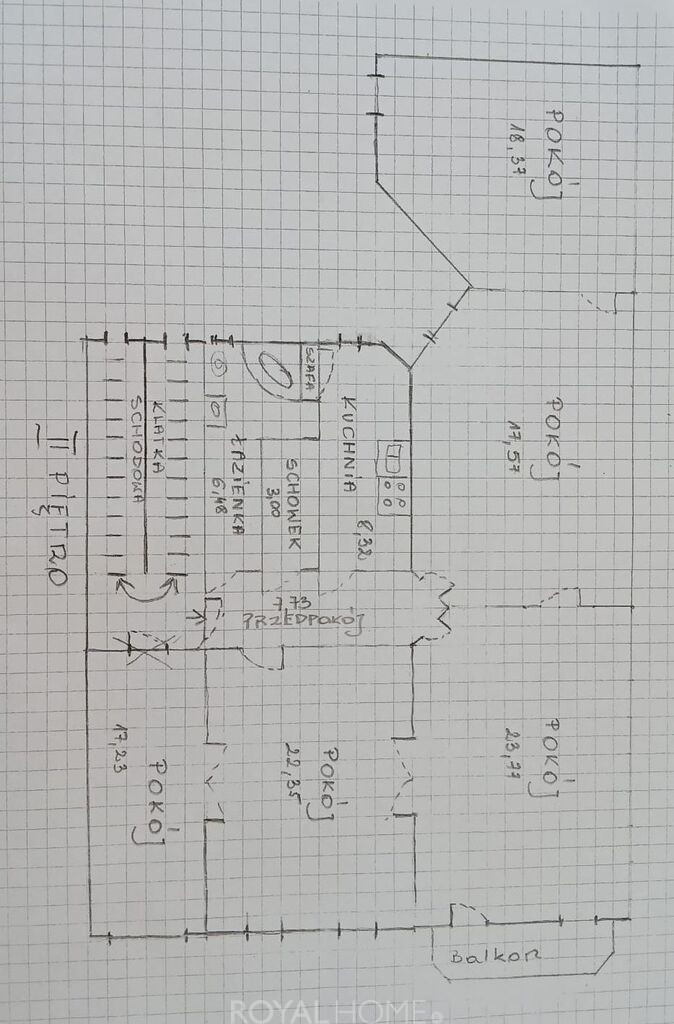 POKÓJ
18,37
POKÓJ
17,57
SZAFA
KUCHNIA
8,32
SCHOWEK
3,00
ŁAZIENKA
6,48
KLATKA
SCHODOWA
II PIĘTRO
7,73
PRZEDPOKÓJ
POKÓJ
23,77
POKÓJ
22,35
POKÓJ
17,23
Balkon
ROYAL HOME